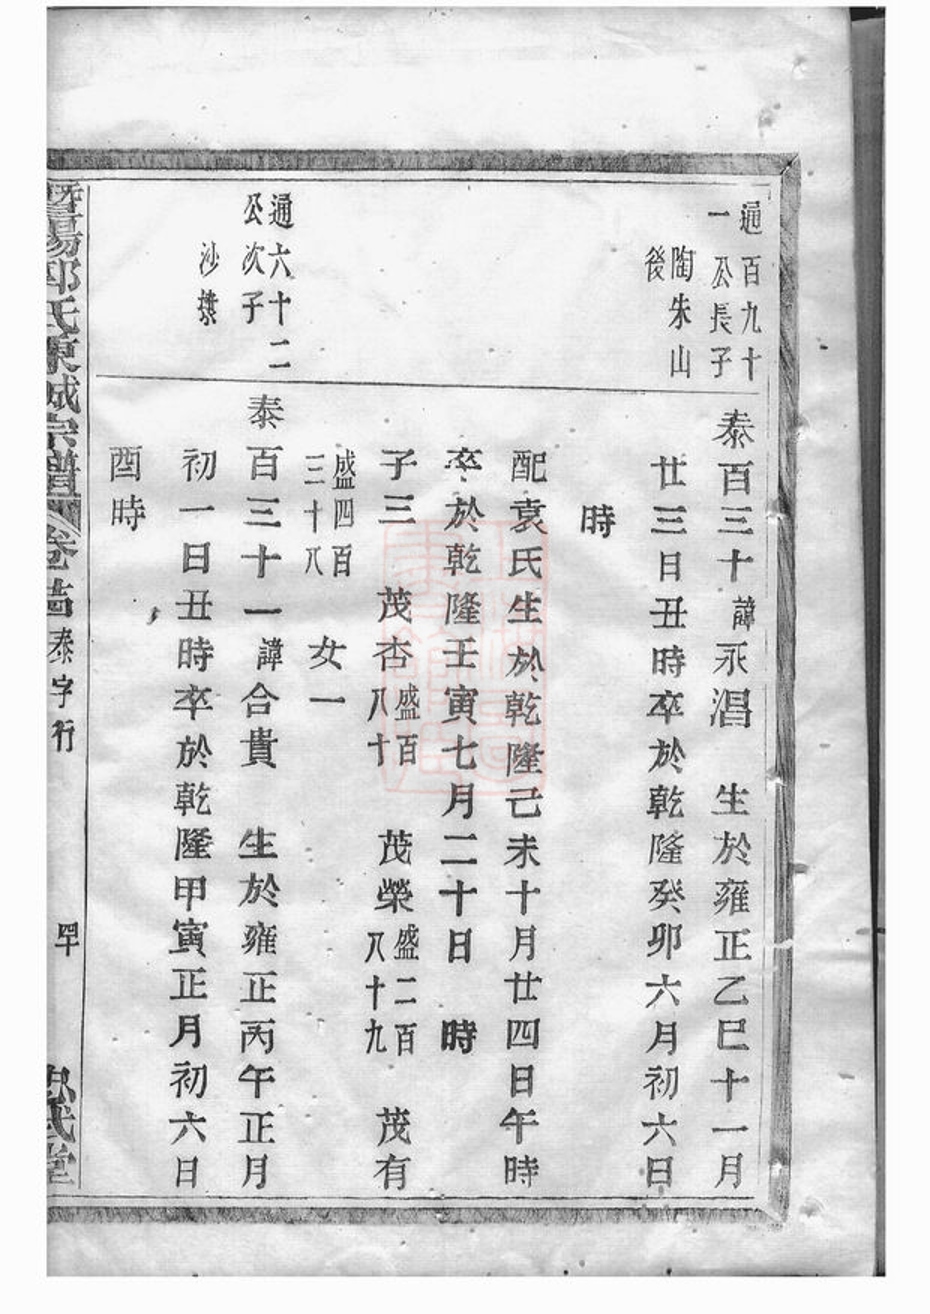 通百九十
一公長子
陶朱山
後
泰百三十諱永淐 生於雍正乙巳十一月
廿三日丑時卒於乾隆癸卯六月初六日
時
配袁氏生於乾隆己未十月廿四日午時
卒於乾隆壬寅七月二十日 時
子三 茂杏盛百八十 茂榮盛二百八十九 茂有
盛四百三十八 女一
通六十二
公次子
沙
泰百三十一諱合貴 生於雍正丙午正月
初一日丑時卒於乾隆甲寅正月初六日
酉時
暨陽郭氏東城宗譜 卷 泰字行 忠武堂